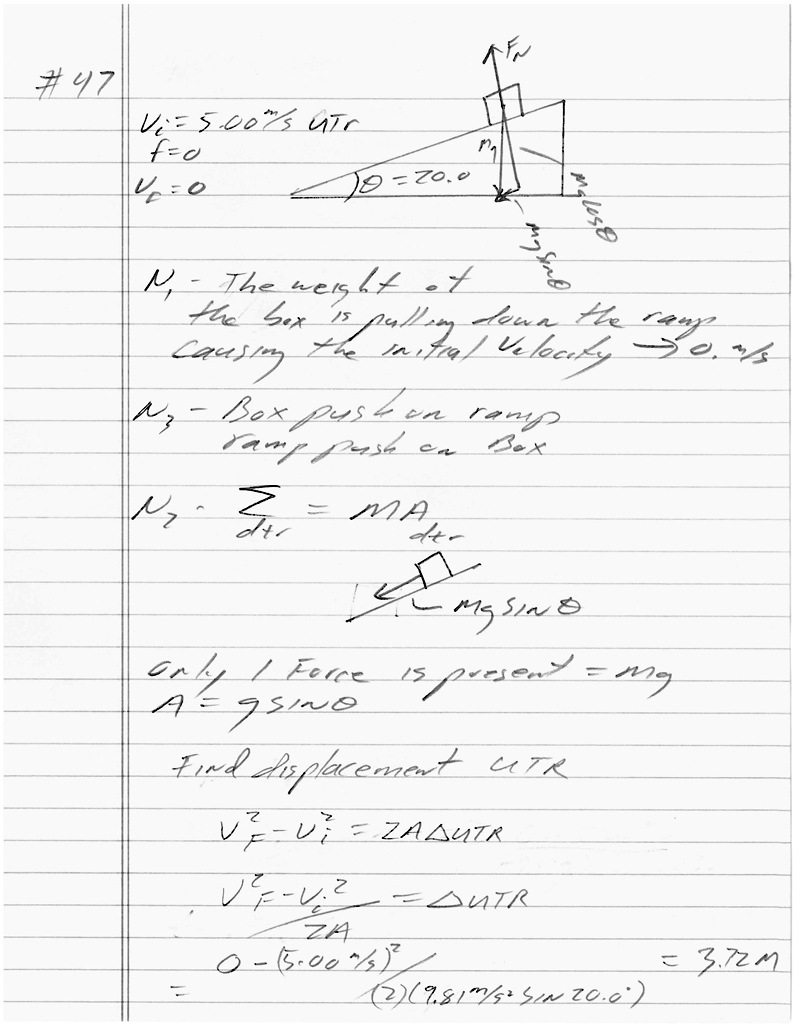 #47
Vi = 5.00 m/s UTr
f = 0
VF = 0
FN
mg
θ = 20.0
mg cos θ
mg sin θ
N1 - The weight of
the box is pulling down the ramp
causing the initial velocity → 0. m/s
N3 - Box push on ramp
ramp push on Box
N2 - Σ dtr = MA dtr
mg sin θ
Only 1 Force is present = mg
A = g sin θ
Find displacement UTR
VF² - Vi² = 2AΔUTR
VF² - Vi² / 2A = ΔUTR
= 0 - (5.00 m/s)² / (2)(9.81 m/s² sin 20.0°) = 3.72 M